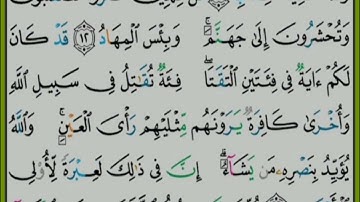 وَتُحْشَرُونَ إِلَىٰ جَهَنَّمَ ۚ وَبِئْسَ ٱلْمِهَادُ ١٢ قَدْ كَانَ
لَكُمْ ءَايَةٌ فِى فِئَتَيْنِ ٱلْتَقَتَا ۖ فِئَةٌ تُقَٰتِلُ فِى سَبِيلِ ٱللَّهِ
وَأُخْرَىٰ كَافِرَةٌ يَرَوْنَهُم مِّثْلَيْهِمْ رَأْىَ ٱلْعَيْنِ ۚ وَٱللَّهُ
يُؤَيِّدُ بِنَصْرِهِۦ مَن يَشَآءُ ۗ إِنَّ فِى ذَٰلِكَ لَعِبْرَةً لِّأُو۟لِى